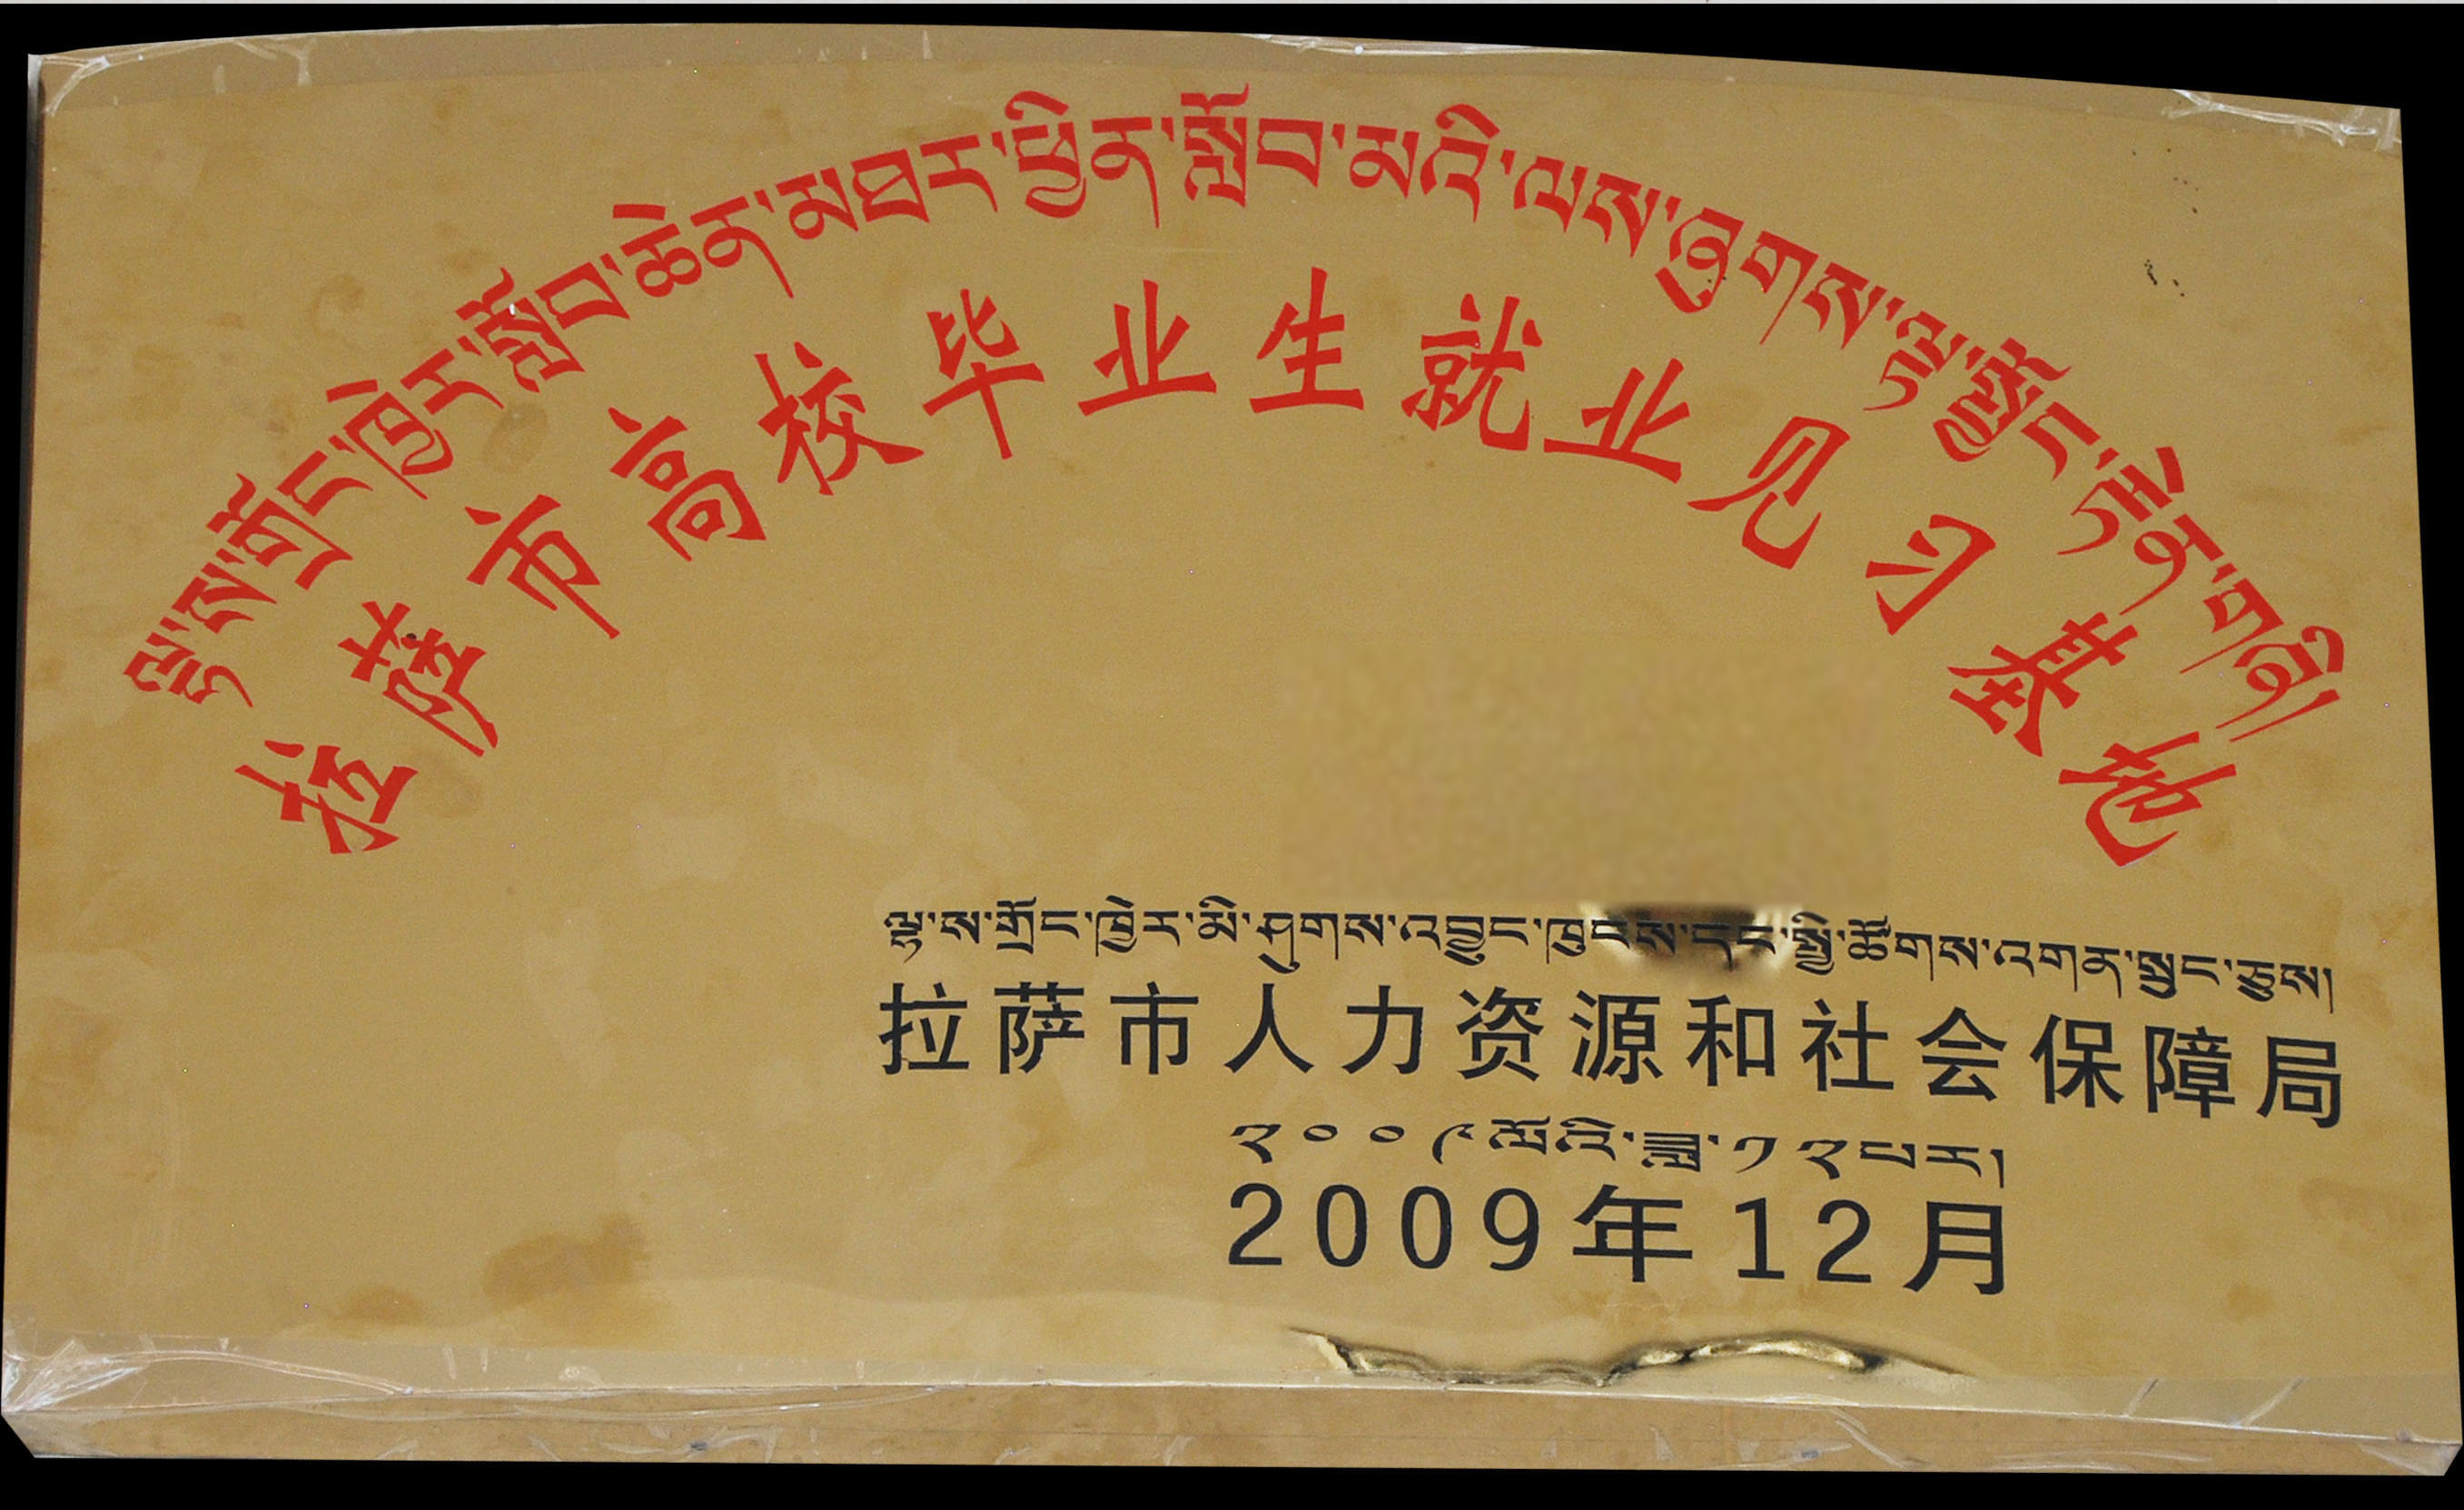 ལྷ་ས་གྲོང་ཁྱེར་སློབ་ཆེན་མཐར་ཕྱིན་སློབ་མའི་ལས་ཞུགས་ལྟ་སྦྱོང་རྟེན་གཞི།
拉萨市高校毕业生就业见习基地
ལྷ་ས་གྲོང་ཁྱེར་མི་ཤུགས་འབྱུང་ཁུངས་དང་སྤྱི་ཚོགས་འགན་སྲུང་ཅུས།
拉萨市人力资源和社会保障局
༢༠༠༩ལོའི་ཟླ་༡༢པར།
2009年12月